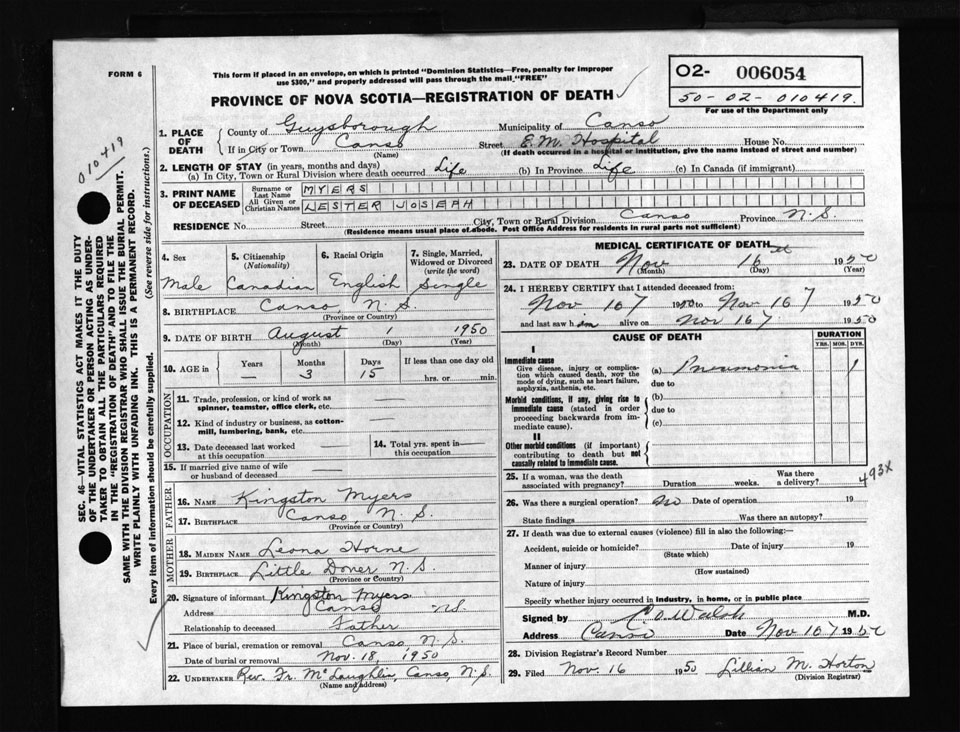 FORM 6
This form if placed in an envelope, on which is printed "Dominion Statistics—Free, penalty for improper
use $300," and properly addressed will pass through the mail "FREE"
PROVINCE OF NOVA SCOTIA—REGISTRATION OF DEATH
02- 006054
50-02-010419.
For use of the Department only
010419
SEC. 46 VITAL STATISTICS ACT MAKES IT THE DUTY
OF THE UNDERTAKER OR PERSON ACTING AS UNDER-
TAKER TO OBTAIN ALL THE PARTICULARS REQUIRED
IN THE "REGISTRATION OF DEATH" AND TO FILE THE
SAME WITH THE DIVISION REGISTRAR WHO SHALL ISSUE THE BURIAL PERMIT.
WRITE PLAINLY WITH UNFADING INK. THIS IS A PERMANENT RECORD.
Every item of information should be carefully supplied. (See reverse side for instructions.)
1. PLACE OF DEATH
County of Guysborough Municipality of Canso
If in City or Town Canso Street E.M. Hospital House No.
(Name) (If death occurred in a hospital or institution, give the name instead of street and number)
2. LENGTH OF STAY (in years, months and days)
(a) In City, Town or Rural Division where death occurred Life (b) In Province Life (c) In Canada (if immigrant)
3. PRINT NAME OF DECEASED
Surname or Last Name MYERS
All Given or Christian Names LESTER JOSEPH
RESIDENCE No. Street City, Town or Rural Division Canso Province N.S.
(Residence means usual place of abode. Post Office Address for residents in rural parts not sufficient)
4. Sex 5. Citizenship (Nationality) 6. Racial Origin 7. Single, Married, Widowed or Divorced (write the word)
Male Canadian English Single
8. BIRTHPLACE Canso, N.S.
(Province or Country)
9. DATE OF BIRTH August 1 1950
(Month) (Day) (Year)
10. AGE in Years Months Days If less than one day old
— 3 15 hrs. or min.
OCCUPATION
11. Trade, profession, or kind of work as
spinner, teamster, office clerk, etc. —
12. Kind of industry or business, as cotton-
mill, lumbering, bank, etc. —
13. Date deceased last worked
at this occupation —
14. Total yrs. spent in
this occupation —
15. If married give name of wife
or husband of deceased —
FATHER
16. NAME Kingston Myers
17. BIRTHPLACE Canso, N.S.
(Province or Country)
MOTHER
18. MAIDEN NAME Leona Horne
19. BIRTHPLACE Little Dover N.S.
(Province or Country)
20. Signature of informant Kingston Myers
Address Canso N.S.
Relationship to deceased Father
21. Place of burial, cremation or removal Canso, N.S.
Date of burial or removal Nov. 18, 1950
22. UNDERTAKER Rev. Fr. McLaughlin, Canso, N.S.
(Name and address)
MEDICAL CERTIFICATE OF DEATH
23. DATE OF DEATH Nov 16th 1950
(Month) (Day) (Year)
24. I HEREBY CERTIFY that I attended deceased from:
Nov 16 1950 to Nov 16 1950
and last saw him alive on Nov 16 1950
CAUSE OF DEATH
DURATION
YRS. MOS. DYS.
I
Immediate cause
Give disease, injury or complica-
tion which caused death, NOT the
mode of dying, such as heart failure,
asphyxia, asthenia, etc.
(a) Pneumonia 1
due to
Morbid conditions, if any, giving rise to
immediate cause (stated in order
proceeding backwards from im-
mediate cause).
(b)
due to
(c)
II
Other morbid conditions (if important)
contributing to death but not
causally related to immediate cause.
493X
25. If a woman, was the death
associated with pregnancy? Duration weeks. Was there
a delivery?
26. Was there a surgical operation? no Date of operation 19
State findings Was there an autopsy?
27. If death was due to external causes (violence) fill in also the following:—
Accident, suicide or homicide? Date of injury 19
(State which)
Manner of injury
(How sustained)
Nature of injury
Specify whether injury occurred in industry, in home, or in public place
Signed by C O Walsh M.D.
Address Canso Date Nov 16 1950
28. Division Registrar's Record Number
29. Filed Nov. 16 1950 Lillian M. Horton
(Division Registrar)